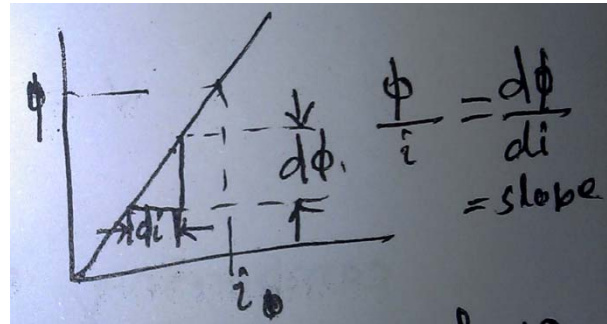 ϕ
dϕ
di
i
ϕ/i = dϕ/di
= slope